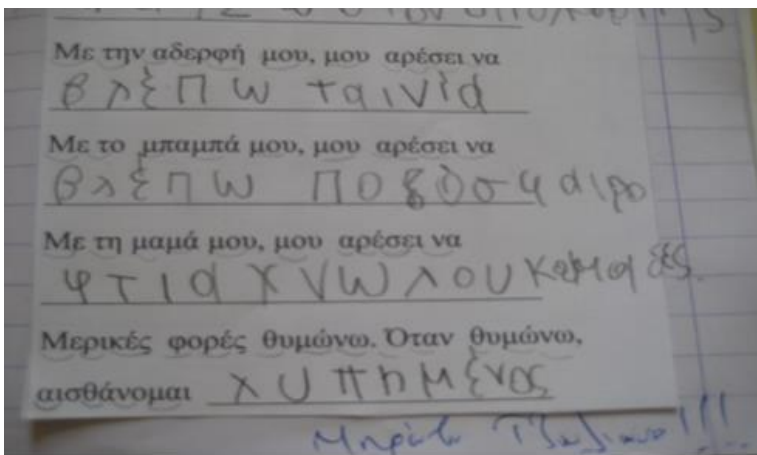 Με την αδερφή μου, μου αρέσει να
βλέπω ταινία
Με το μπαμπά μου, μου αρέσει να
βλέπω ποδόσφαιρο
Με τη μαμά μου, μου αρέσει να
φτιαχνω λουκουμαδες.
Μερικές φορές θυμώνω. Όταν θυμώνω,
αισθάνομαι λυπημένος
Μπράβο !!!